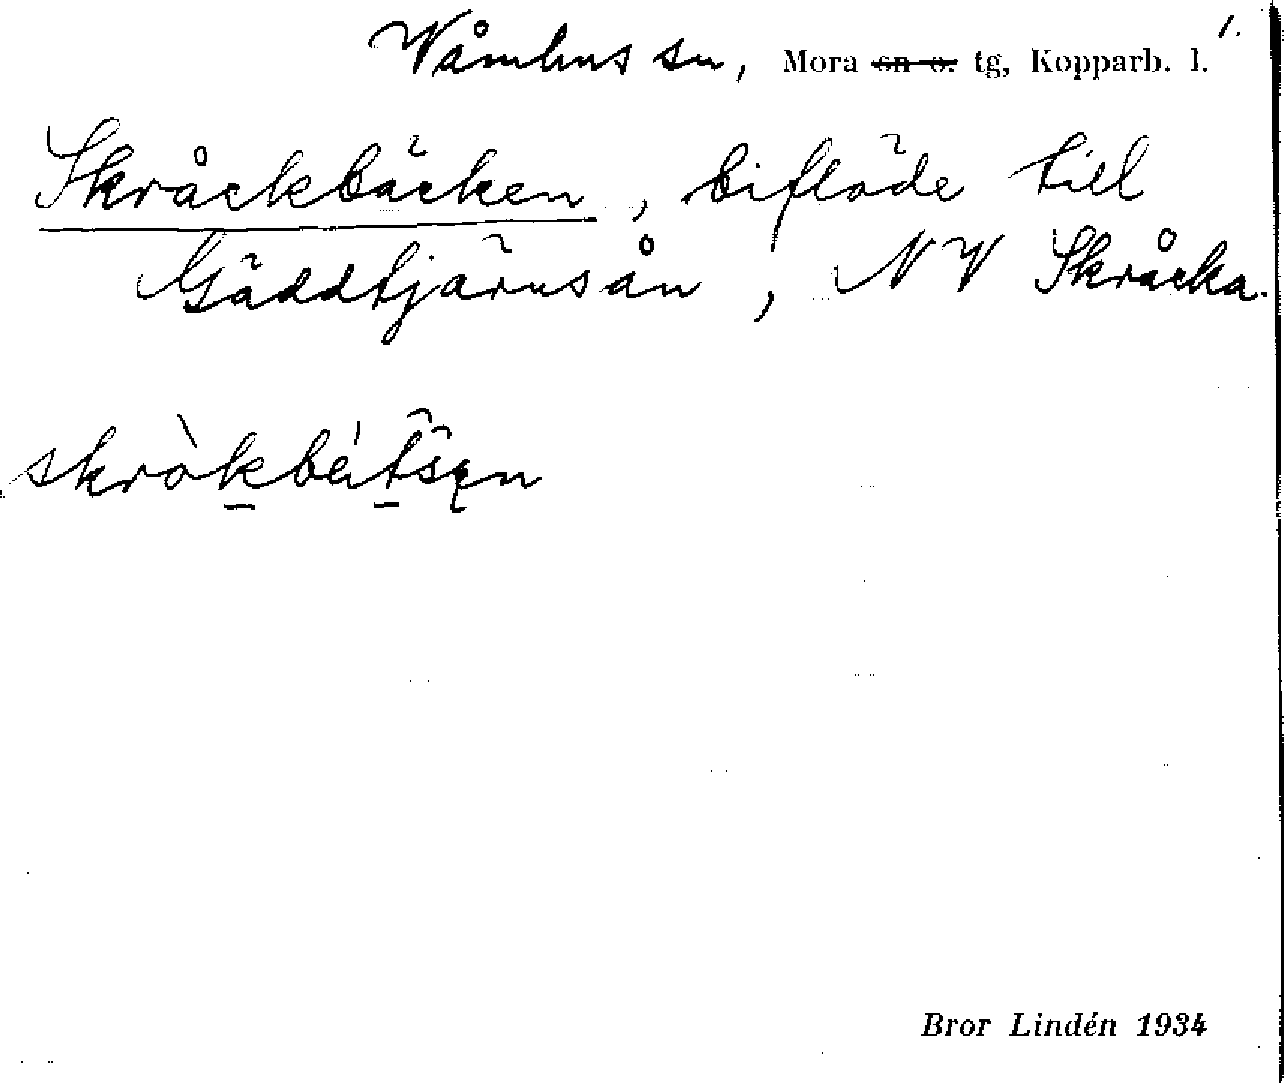 1.
Våmhus sn, Mora sn o. tg, Kopparb. l.
Skråckbäcken, biflöde till
Gäddtjärnsån, NV Skråcka.
skròkbétsen
Bror Lindén 1934